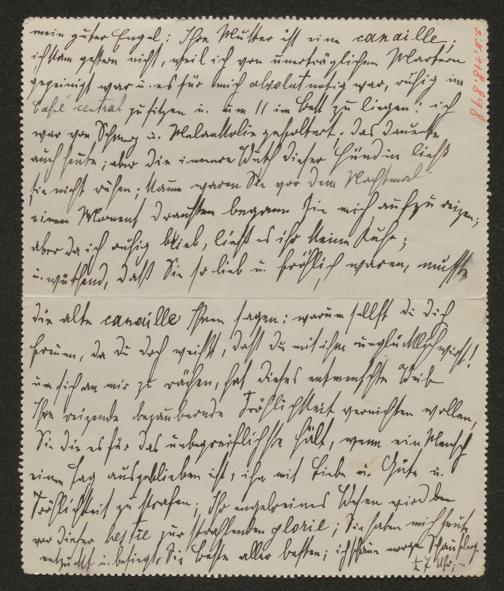 mein guter Engel: Ihre Mutter ist eine canaille;
ich kam gestern nicht, weil ich von unerträglichen Martern
gepeinigt war u. es für mich absolut nötig war, ruhig im
Café central zu sitzen u. um 11 im Bett zu liegen; ich
war von Schmerz u. Melancholie gefoltert. das dauerte
auch heute; aber die innere Wut dieser Hündin ließ
sie nicht ruhen; kaum waren Sie vor dem Nachtmal
einen Moment draußen begann sie mich aufzureizen;
aber da ich ruhig blieb, ließ es ihr keine Ruhe;
u. wütend, daß Sie so lieb u. fröhlich waren, mußte
die alte canaille Ihnen sagen: warum sollst du dich
freuen, da du doch weißt, daß du mit ihm unglücklich wirst!
um sich an mir zu rächen, hat dieses entmenschte Weib
Ihre reizende bezaubernde Fröhlichkeit vernichten wollen,
Sie die es für das unbegreiflichste hält, wenn ein Mensch
einen Tag ausgeblieben ist, ihn mit Liebe u. Güte u.
Fröhlichkeit zu strafen; Ihr engelreines Wesen wird
vor dieser bestie zur strahlenden glorie; Sie haben mich heute
entzückt u. besiegt, Sie beste aller besten; ich komme morgen
½ 7 Uhr;